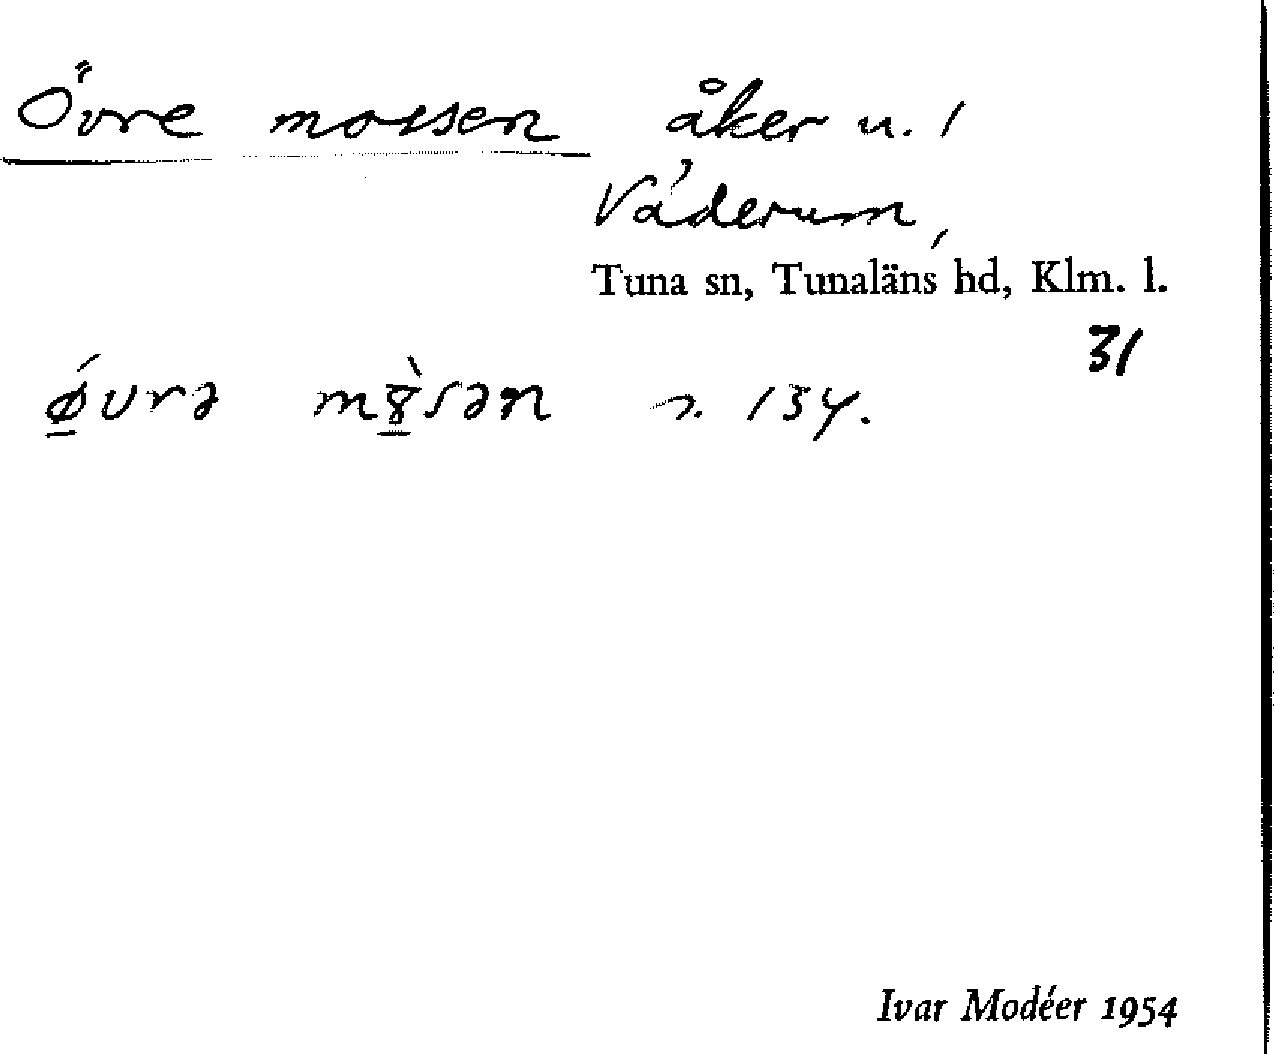 Övre mossen åker u. 1
Väderum,
Tuna sn, Tunaläns hd, Klm. l.
31
ǿ̲vrə m8̲̀sən n. 134.
Ivar Modéer 1954